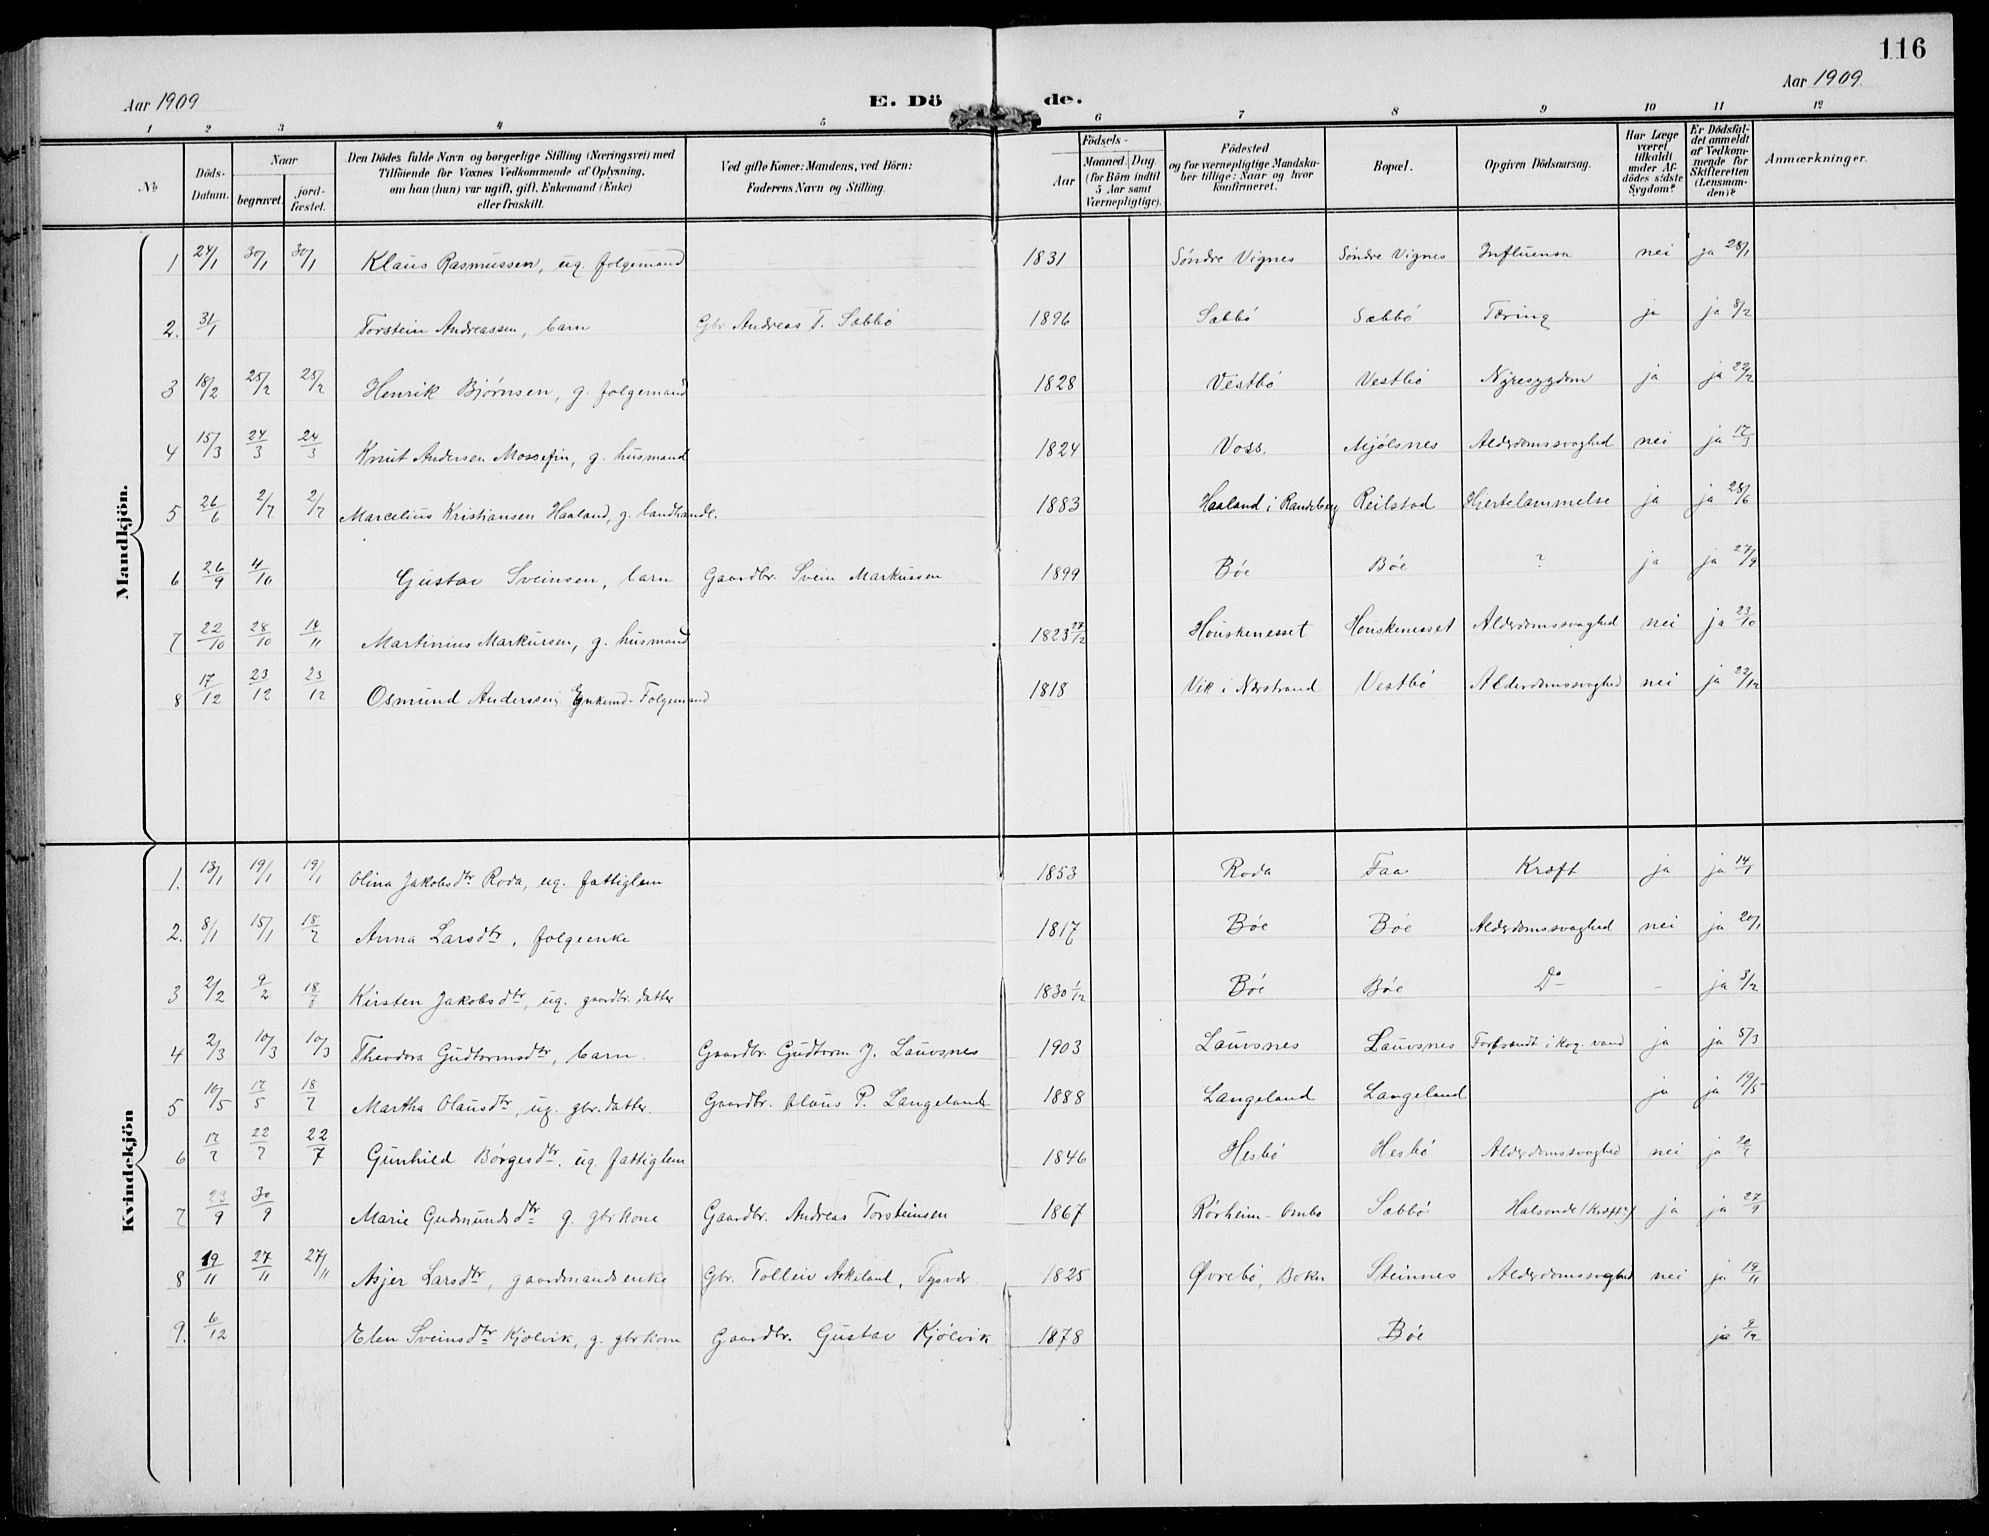 116
Aar 1909
E. Dö de.
Aar 1909.
1 2 3 4 5 6 7 8 9 10 11 12
No
Döds-Datum.
Naar
begravet.
jordfæstet.
Den Dödes fulde Navn og borgerlige Stilling (Næringsvei) med
Tilföiende for Voxnes Vedkommende af Oplysning,
om han (hun) var ugift, gift, Enkemand (Enke)
eller fraskilt.
Ved gifte Koner: Mandens, ved Börn:
Faderens Navn og Stilling.
Födsels-
Aar
Maaned. Dag
(for Börn indtil
5 Aar samt
Værnepligtige).
Födested
og for værnepligtige Mandskaber tillige: Naar og hvor
konfirmeret.
Bopæl.
Opgiven Dödsaarsag.
Har Læge
været
tilkaldt
under Afdödes sidste
Sygdom?
Er Dödsfaldet anmeldt
af Vedkommende for
Skifteretten
(Lensmanden)?
Anmærkninger.
Mandkjön.
1 24/1 30/1 30/1 Klaus Rasmussen, ug. folgemand 1831 Søndre Vignes Søndre Vignes Influensa nei ja 28/1
2. 31/1 Torstein Andreassen, barn Gbr Andreas T. Sæbbö 1896 Sæbbö Sæbbö Tæring ja ja 8/2
3 18/2 25/2 25/2 Henrik Bjørnsen, g. folgemand 1828 Vestbö Vestbö Nyresygdom ja ja 22/2
4 15/3 24/3 24/3 Knut Andersen Mossefin, g. husmand 1824 Voss. Mjölsnes Alderdomssvaghed nei ja 17/3
5 26/6 2/7 2/7 Marcelius Kristiansen Haaland, g. landhandl. 1883 Haaland i Randeberg Reilstad Hjertelammelse ja ja 28/6
6 26/9 4/10 Gustav Sveinsen, barn Gaardbr. Svein Markussen 1899 Böe Böe ? ja ja 27/9
7 22/10 28/10 14/11 Martinius Markussen, g. husmand 1823 27/12 Houskenesset Houskenesset Alderdomssvaghed nei ja 23/10
8 17/12 23/12 23/12 Osmund Anderssen, Enkemd-Folgemand 1818 Vik i Nerstrand Vestbö Alderdomssvaghed nei ja 22/12
Kvindekjön
1. 13/1 19/1 19/1 Olina Jakobsdtr Roda, ug. fattiglem 1853 Roda Faa Kræft ja ja 14/1
2. 8/1 15/1 18/7 Anna Larsdtr, folgeenke 1817 Böe Böe Alderdomssvaghed nei ja 20/1
3 2/2 9/2 18/7 Kirsten Jakobsdtr, ug. gaardbr. datter 1830 1/12 Böe Böe Do - - ja 3/2
4 2/3 10/3 10/3 Theodora Gudtormsdtr, barn. Gaardbr. Gudtorm J. Lauvsnes 1903 Lauvsnes Lauvsnes Forbrændt i kog. vand ja ja 5/3
5 10/5 17/5 18/7 Martha Olausdtr, ug. gbr. datter. Gaardbr. Olaus P. Langeland 1888 Langeland Langeland ja ja 19/5
6 17/7 22/7 22/7 Gunhild Børgesdtr. ug. fattiglem 1846 Hesbö Hesbö Alderdomssvaghed nei ja
7 23/9 30/9 Marie Gudmundsdtr g. gbrkone Gaardbr. Andreas Torsteinsen 1867 Rörheim-Ombo Sæbbö Halsonde (Kræft?) ja ja 27/9
8 19/11 27/11 27/11 Asjer Larsdtr, gaardmandsenke Gbr. Tolleiv Askeland, Tysvær. 1825 Øvrebö, Bokn Steinnes Alderdomssvaghed nei ja 19/11
9. 6/12 Elen Sveinsdtr Kjölvik, g. gbrkone Gaardbr. Gustav Kjölvik 1878 Böe ja 9/12